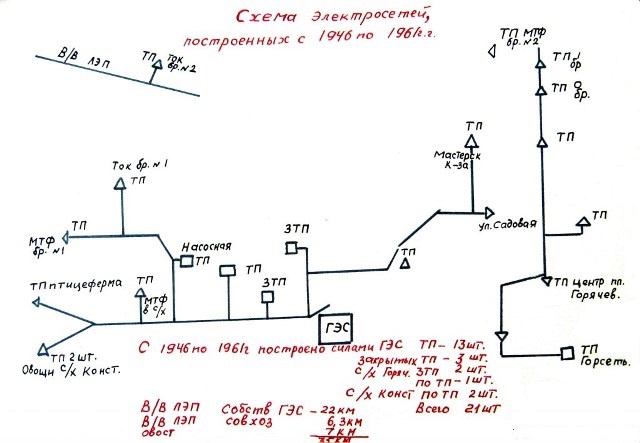 Схема электросетей,
построенных с 1946 по 1961 г.г.
В/В ЛЭП
ТП Ток
бр. №2
ТП МТФ
бр. №2
ТП 1
бр
ТП
бр.
ТП
ТП
Мастерск
К-за
Ток бр. №1
ТП
ТП
МТФ
бр. №1
Насосная
ТП
ЗТП
ТП
ул. Садовая
ТП
ТП птицеферма
ТП
МТФ
в с/х
ТП
ЗТП
ГЭС
ТП центр пл.
Горячев.
ТП 2 шт.
Овощи с/х Конст.
ТП
Горсеть.
С 1946 по 1961 г построено силами ГЭС ТП - 13 шт.
Закрытых ТП - 3 шт.
с/х Горяч. ЗТП 2 шт.
по ТП - 1 шт.
с/х Конст по ТП 2 шт.
Всего 21 шт
В/В ЛЭП Собств ГЭС - 22 км
В/В ЛЭП совхоз 6,3 км
овост 7 км
35 км